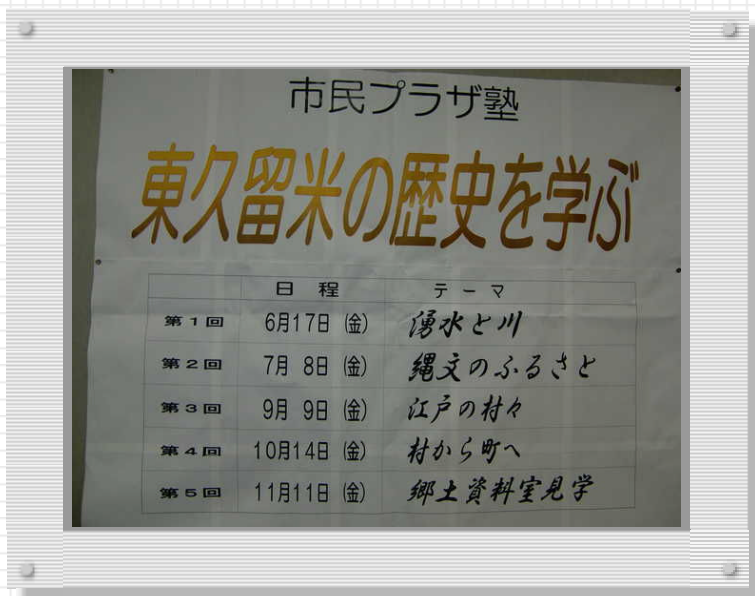 市民プラザ塾
東久留米の歴史を学ぶ
日 程 テーマ
第1回 6月17日 (金) 湧水と川
第2回 7月 8日 (金) 縄文のふるさと
第3回 9月 9日 (金) 江戸の村々
第4回 10月14日 (金) 村から町へ
第5回 11月11日 (金) 郷土資料室見学